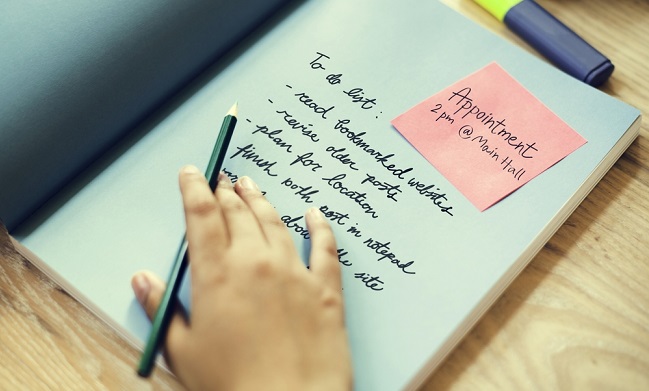 To do list:
- read bookmarked websites
- revise older posts
- plan for location
finish both post in notepad
about the site
Appointment
2 pm @ Main Hall